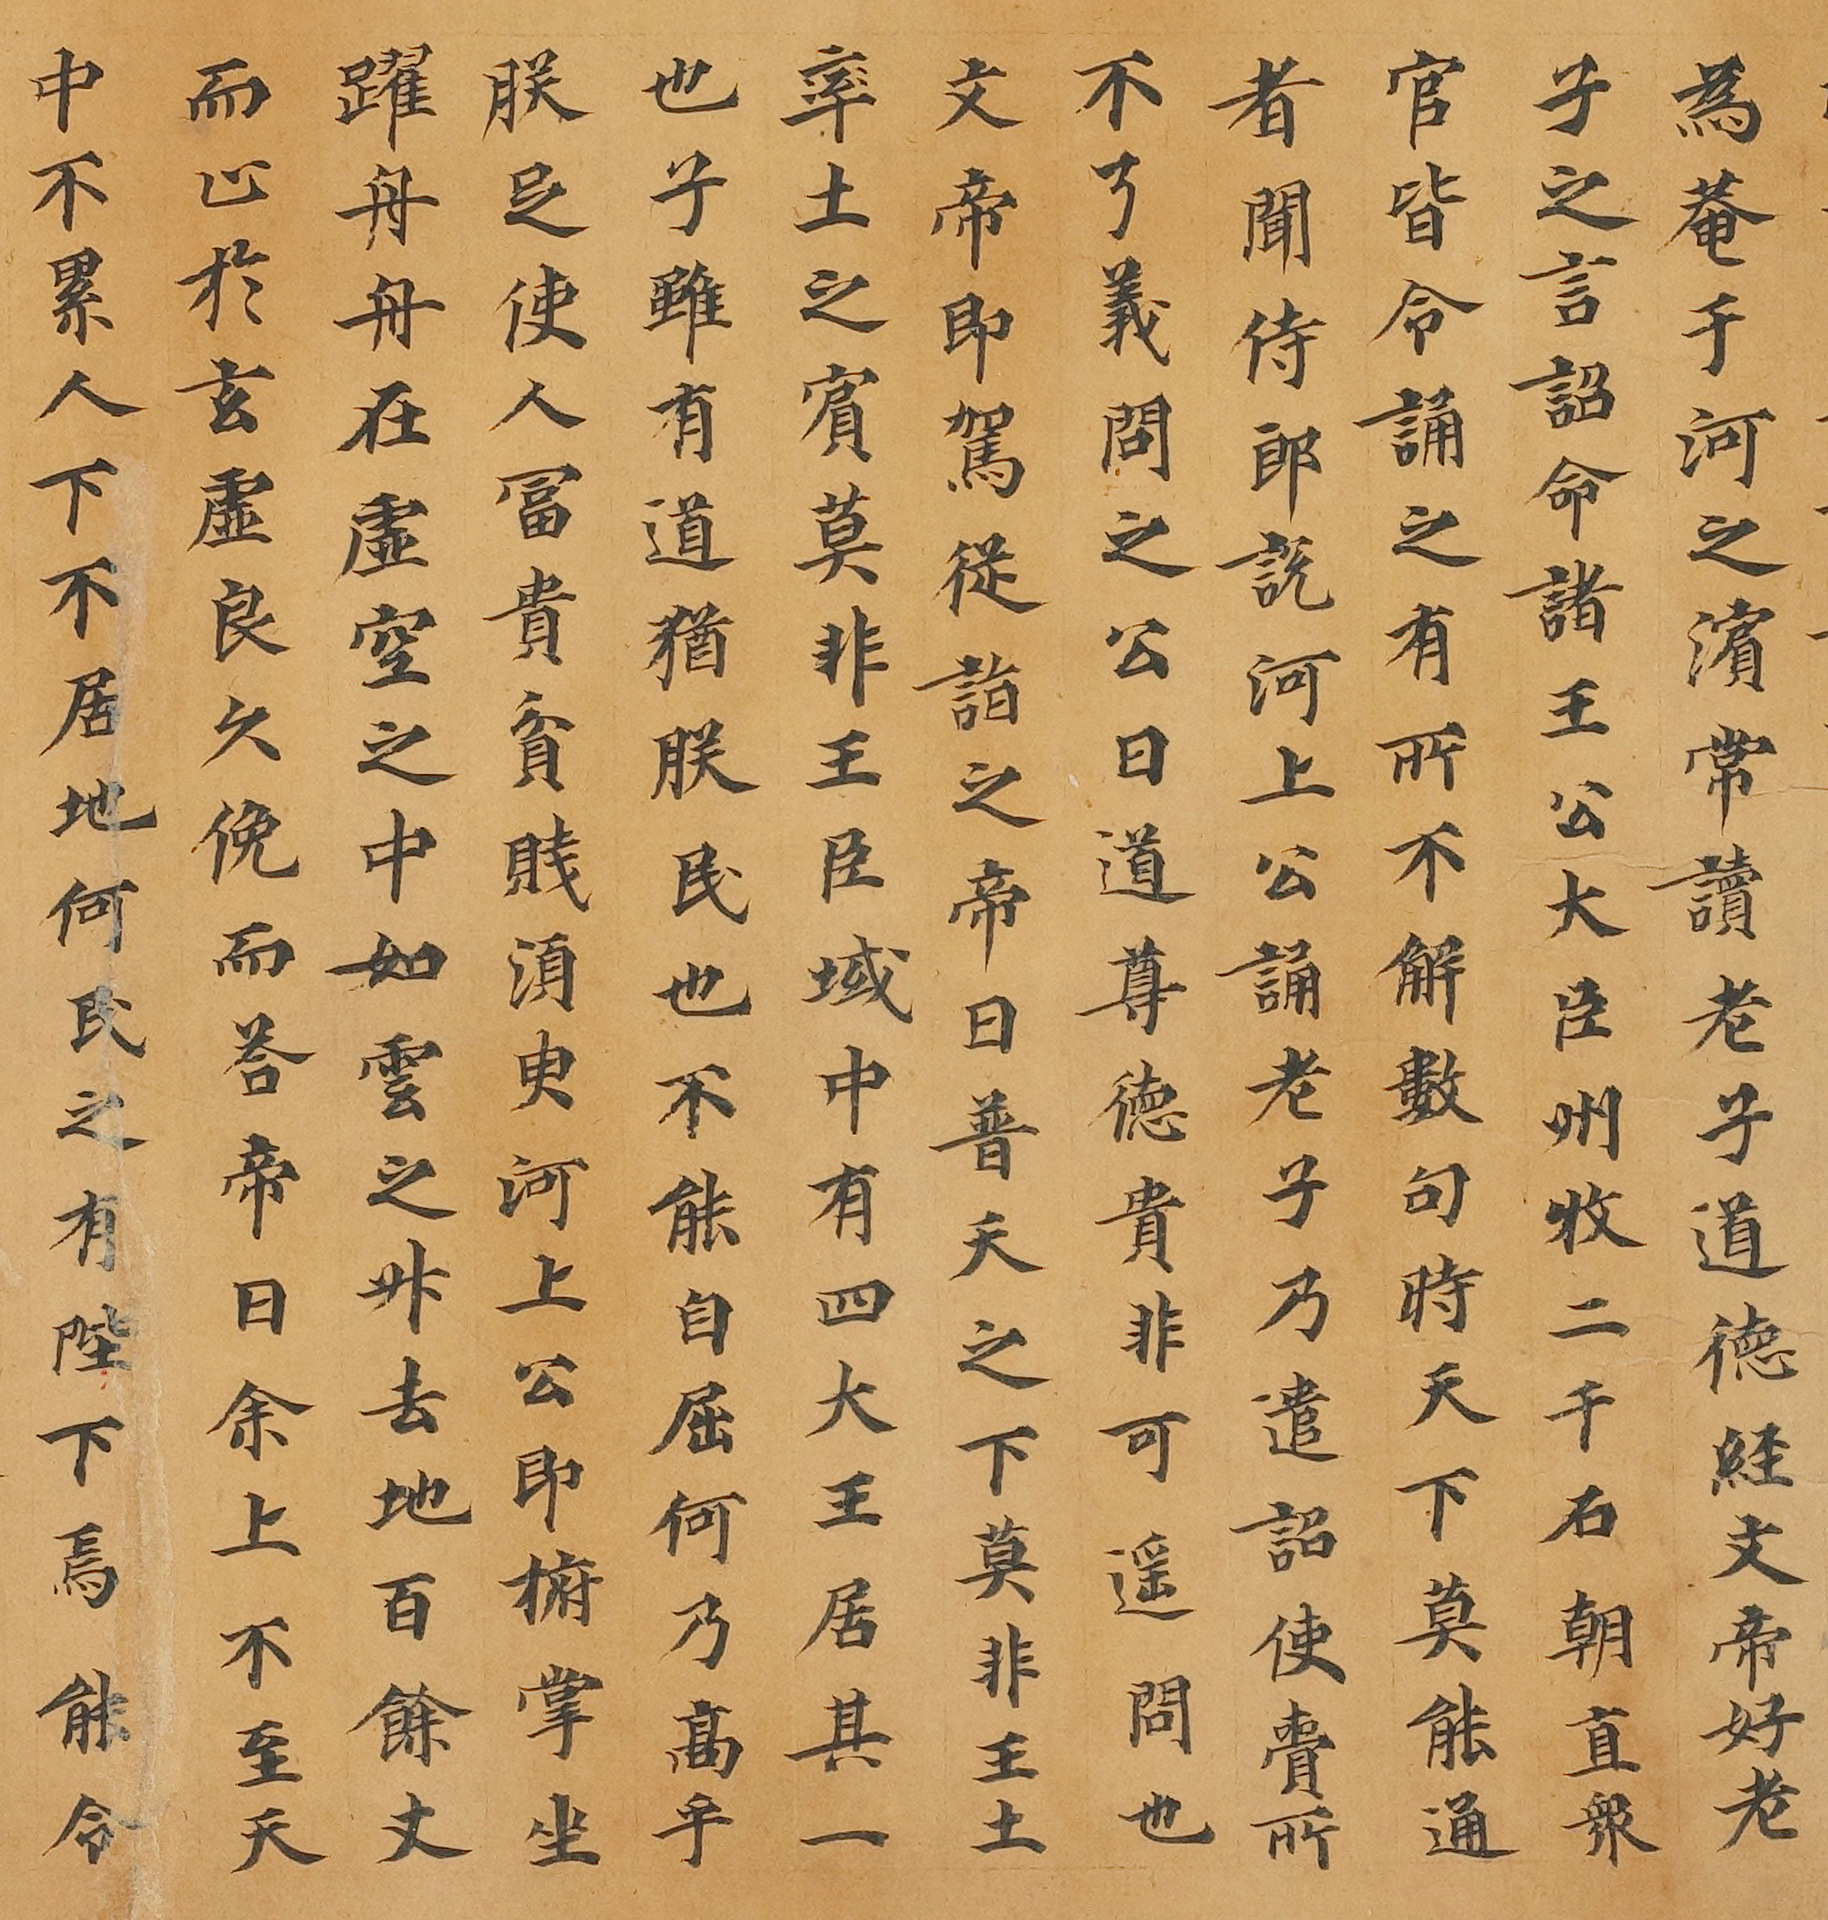 為菴于河之濱常讀老子道德経文帝好老
子之言詔命諸王公大臣州牧二千石朝直衆
官皆令誦之有所不解數句時天下莫能通
者聞侍郎說河上公誦老子乃遣詔使賷所
不了義問之公曰道尊德貴非可遥問也
文帝即駕從詣之帝曰普天之下莫非王土
率土之賓莫非王臣域中有四大王居其一
也子雖有道猶朕民也不能自屈何乃高乎
朕足使人冨貴貧賎湏臾河上公即撫掌坐
躍冉冉在虛空之中如雲之升去地百餘丈
而止於玄虛良久俛而荅帝曰余上不至天
中不累人下不居地何民之有陛下焉能令